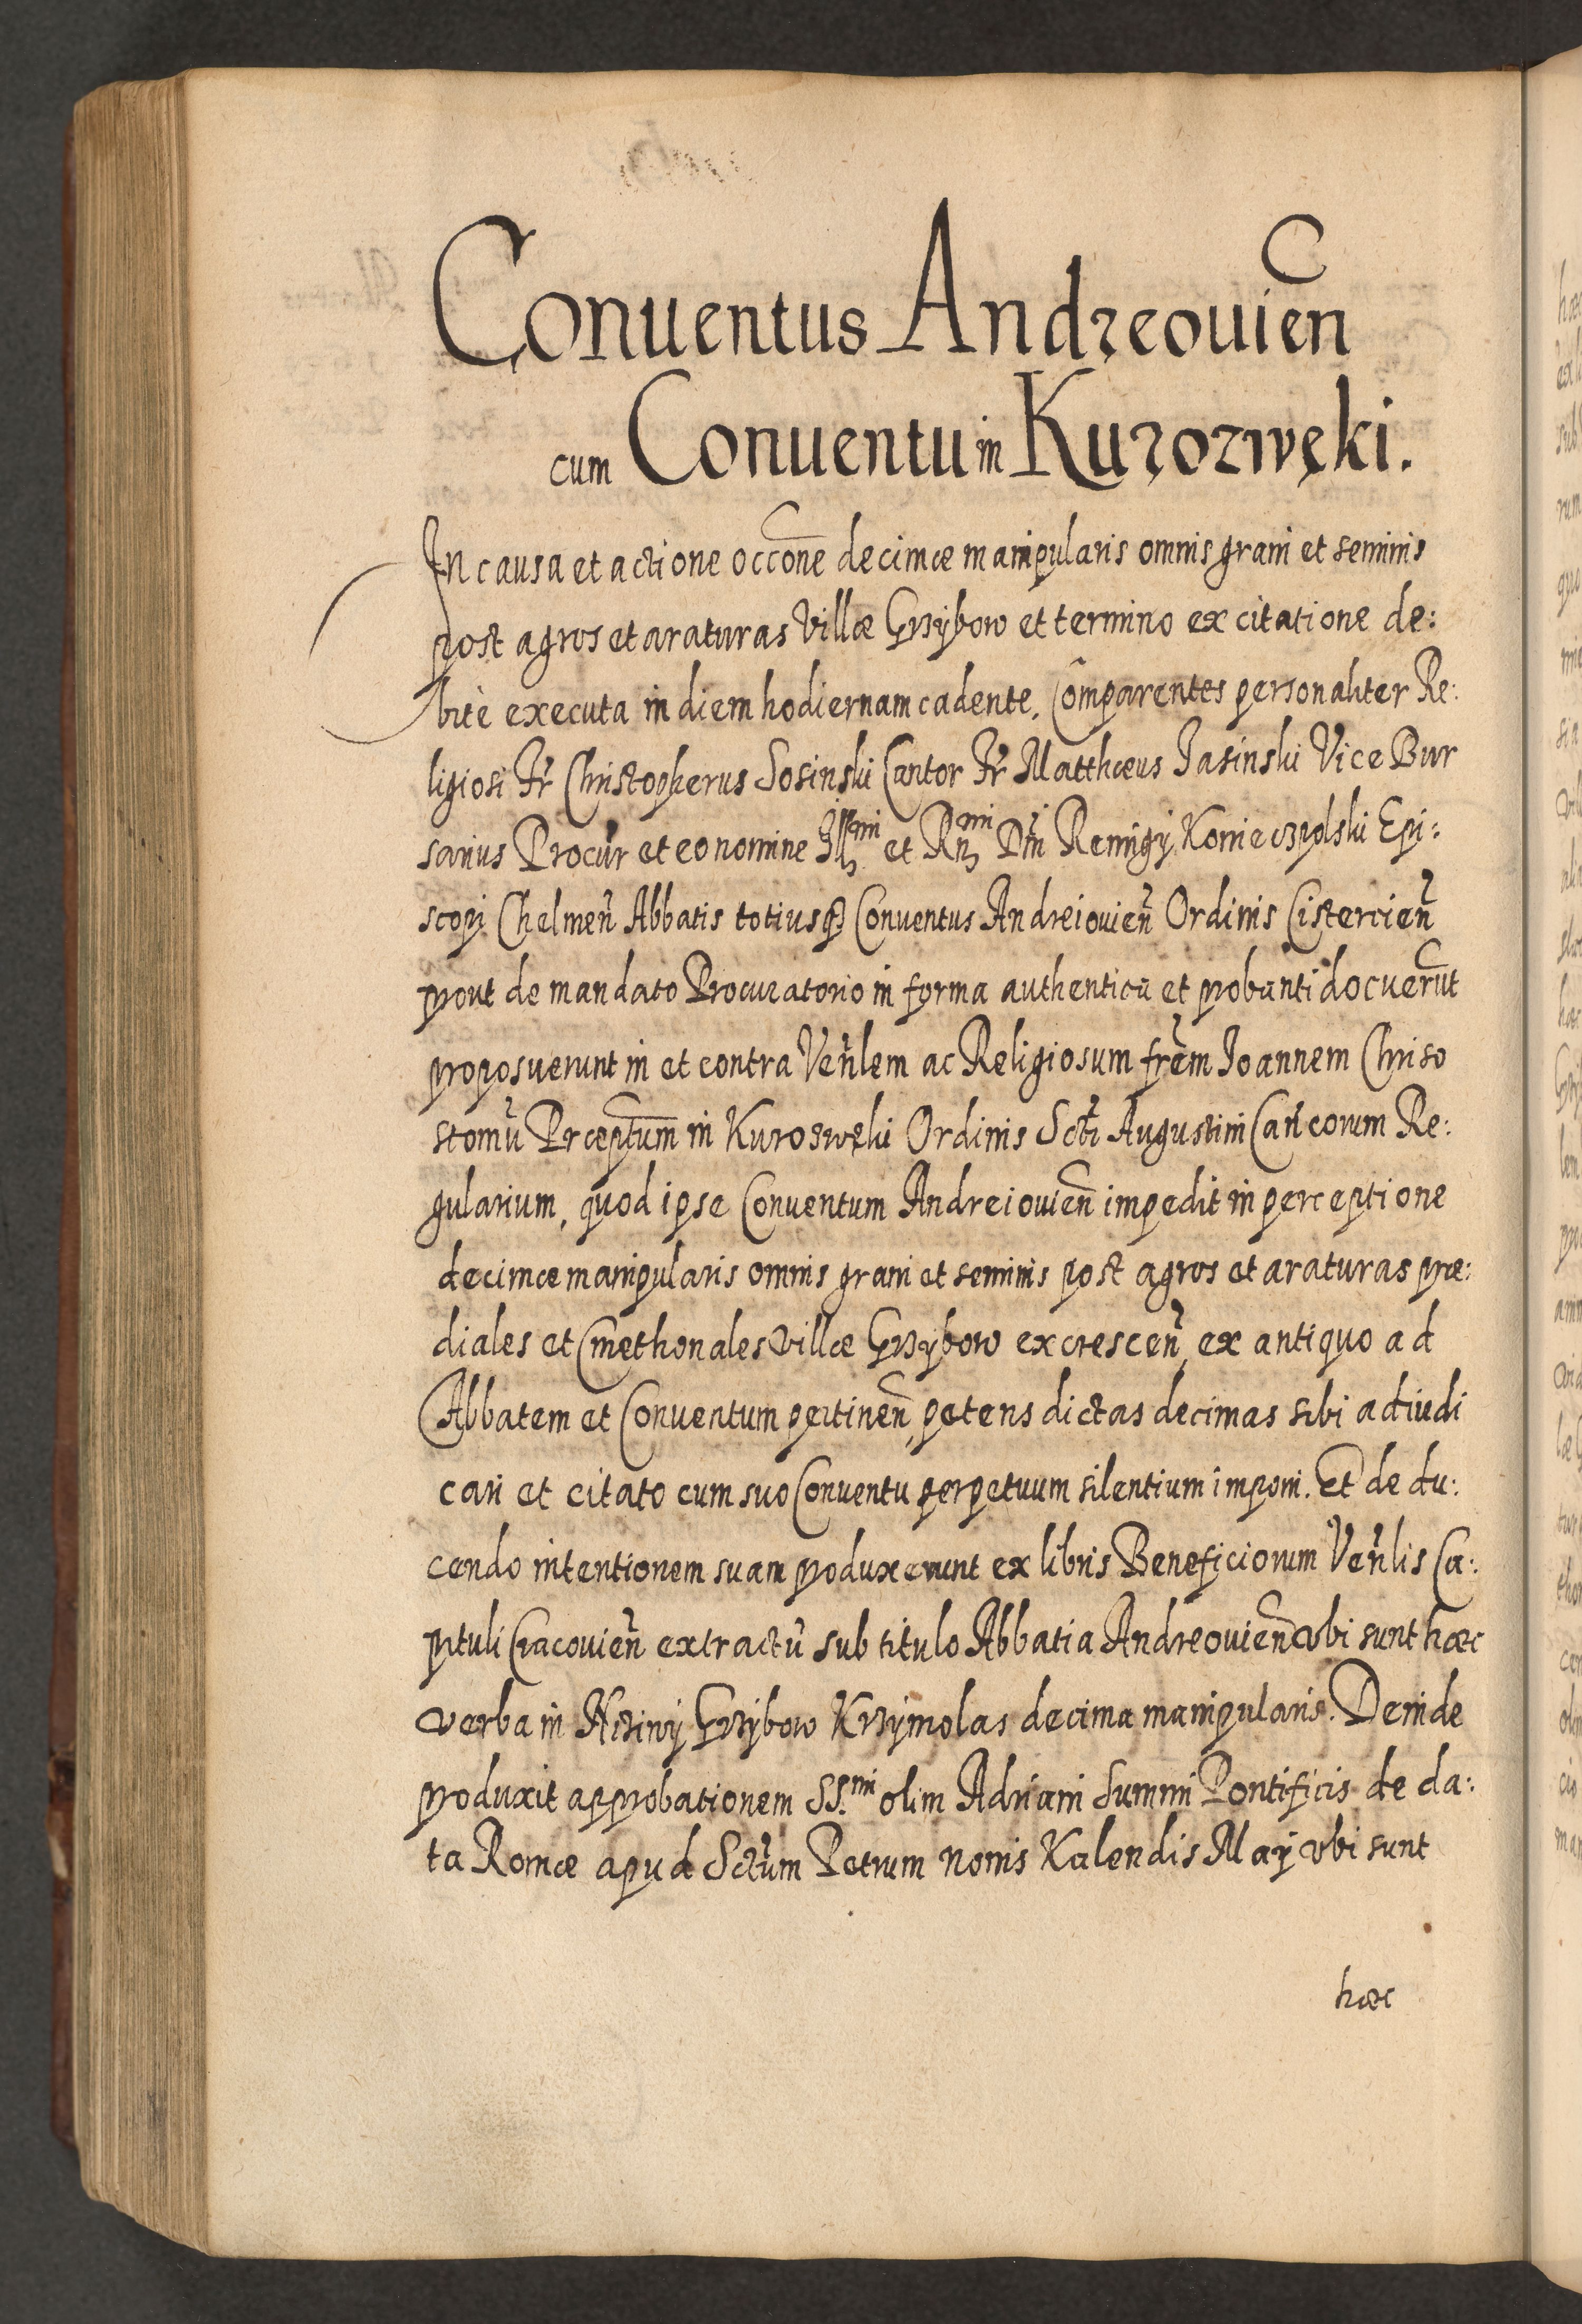 Conuentus Andreouień
cum Conuentu in Kurozwęki.
In causa et actione occōne decimæ manipularis omnis grani et seminis
post agros et araturas Villæ Grzybow et termino ex citatione de:
bitè executa in diem hodiernam cadente. Cômparentes personaliter Re:
ligiosi Fr̃ Christopherus Sosinski Cantor Fr̃ Matthæus Jasinski Vice Bur
sarius Procur̃ et eo nomine Illmi et Rmi Dñi Remigij Konieczpolski Epi:
scopi Chelmeñ Abbatis totiusq̃ Conuentus Andreiouieñ Ordinis Cistercieñ
prout de mandato Procuratorio in forma authentica et probanti docuerūt
proposuerunt in et contra Veñlem ac Religiosum fr̃em Joannem Chriso
stomũ Præptum in Kurozwęki Ordinis Scti Augustini Cañcorum Re:
gularium, quod ipse Conuentum Andreiouieñ impedit in perceptione
decimæ manipularis omnis grani et seminis post agros et araturas præ:
diales et Cmethonales villæ Grzybow excresceñ, ex antiquo ad
Abbatem et Conuentum pertineñ, petens dictas decimas sibi adiudi
cari et citato cum suo Conuentu perpetuum silentium imponi. Et de du:
cendo intentionem suam produxerunt ex libris Beneficiorum Veñlis Ca:
ptuli Cracouieñ extractũ sub titulo Abbatia Andreouieñ vbi sunt hæc
verba in Grzybow Krzymolas decima manipularis. Deinde
produxit approbationem SS.mi olim Adriani Summi Pontificis de da:
ta Romæ apud Sctum Petrum nonis Kalendis Maij vbi sunt
hæc